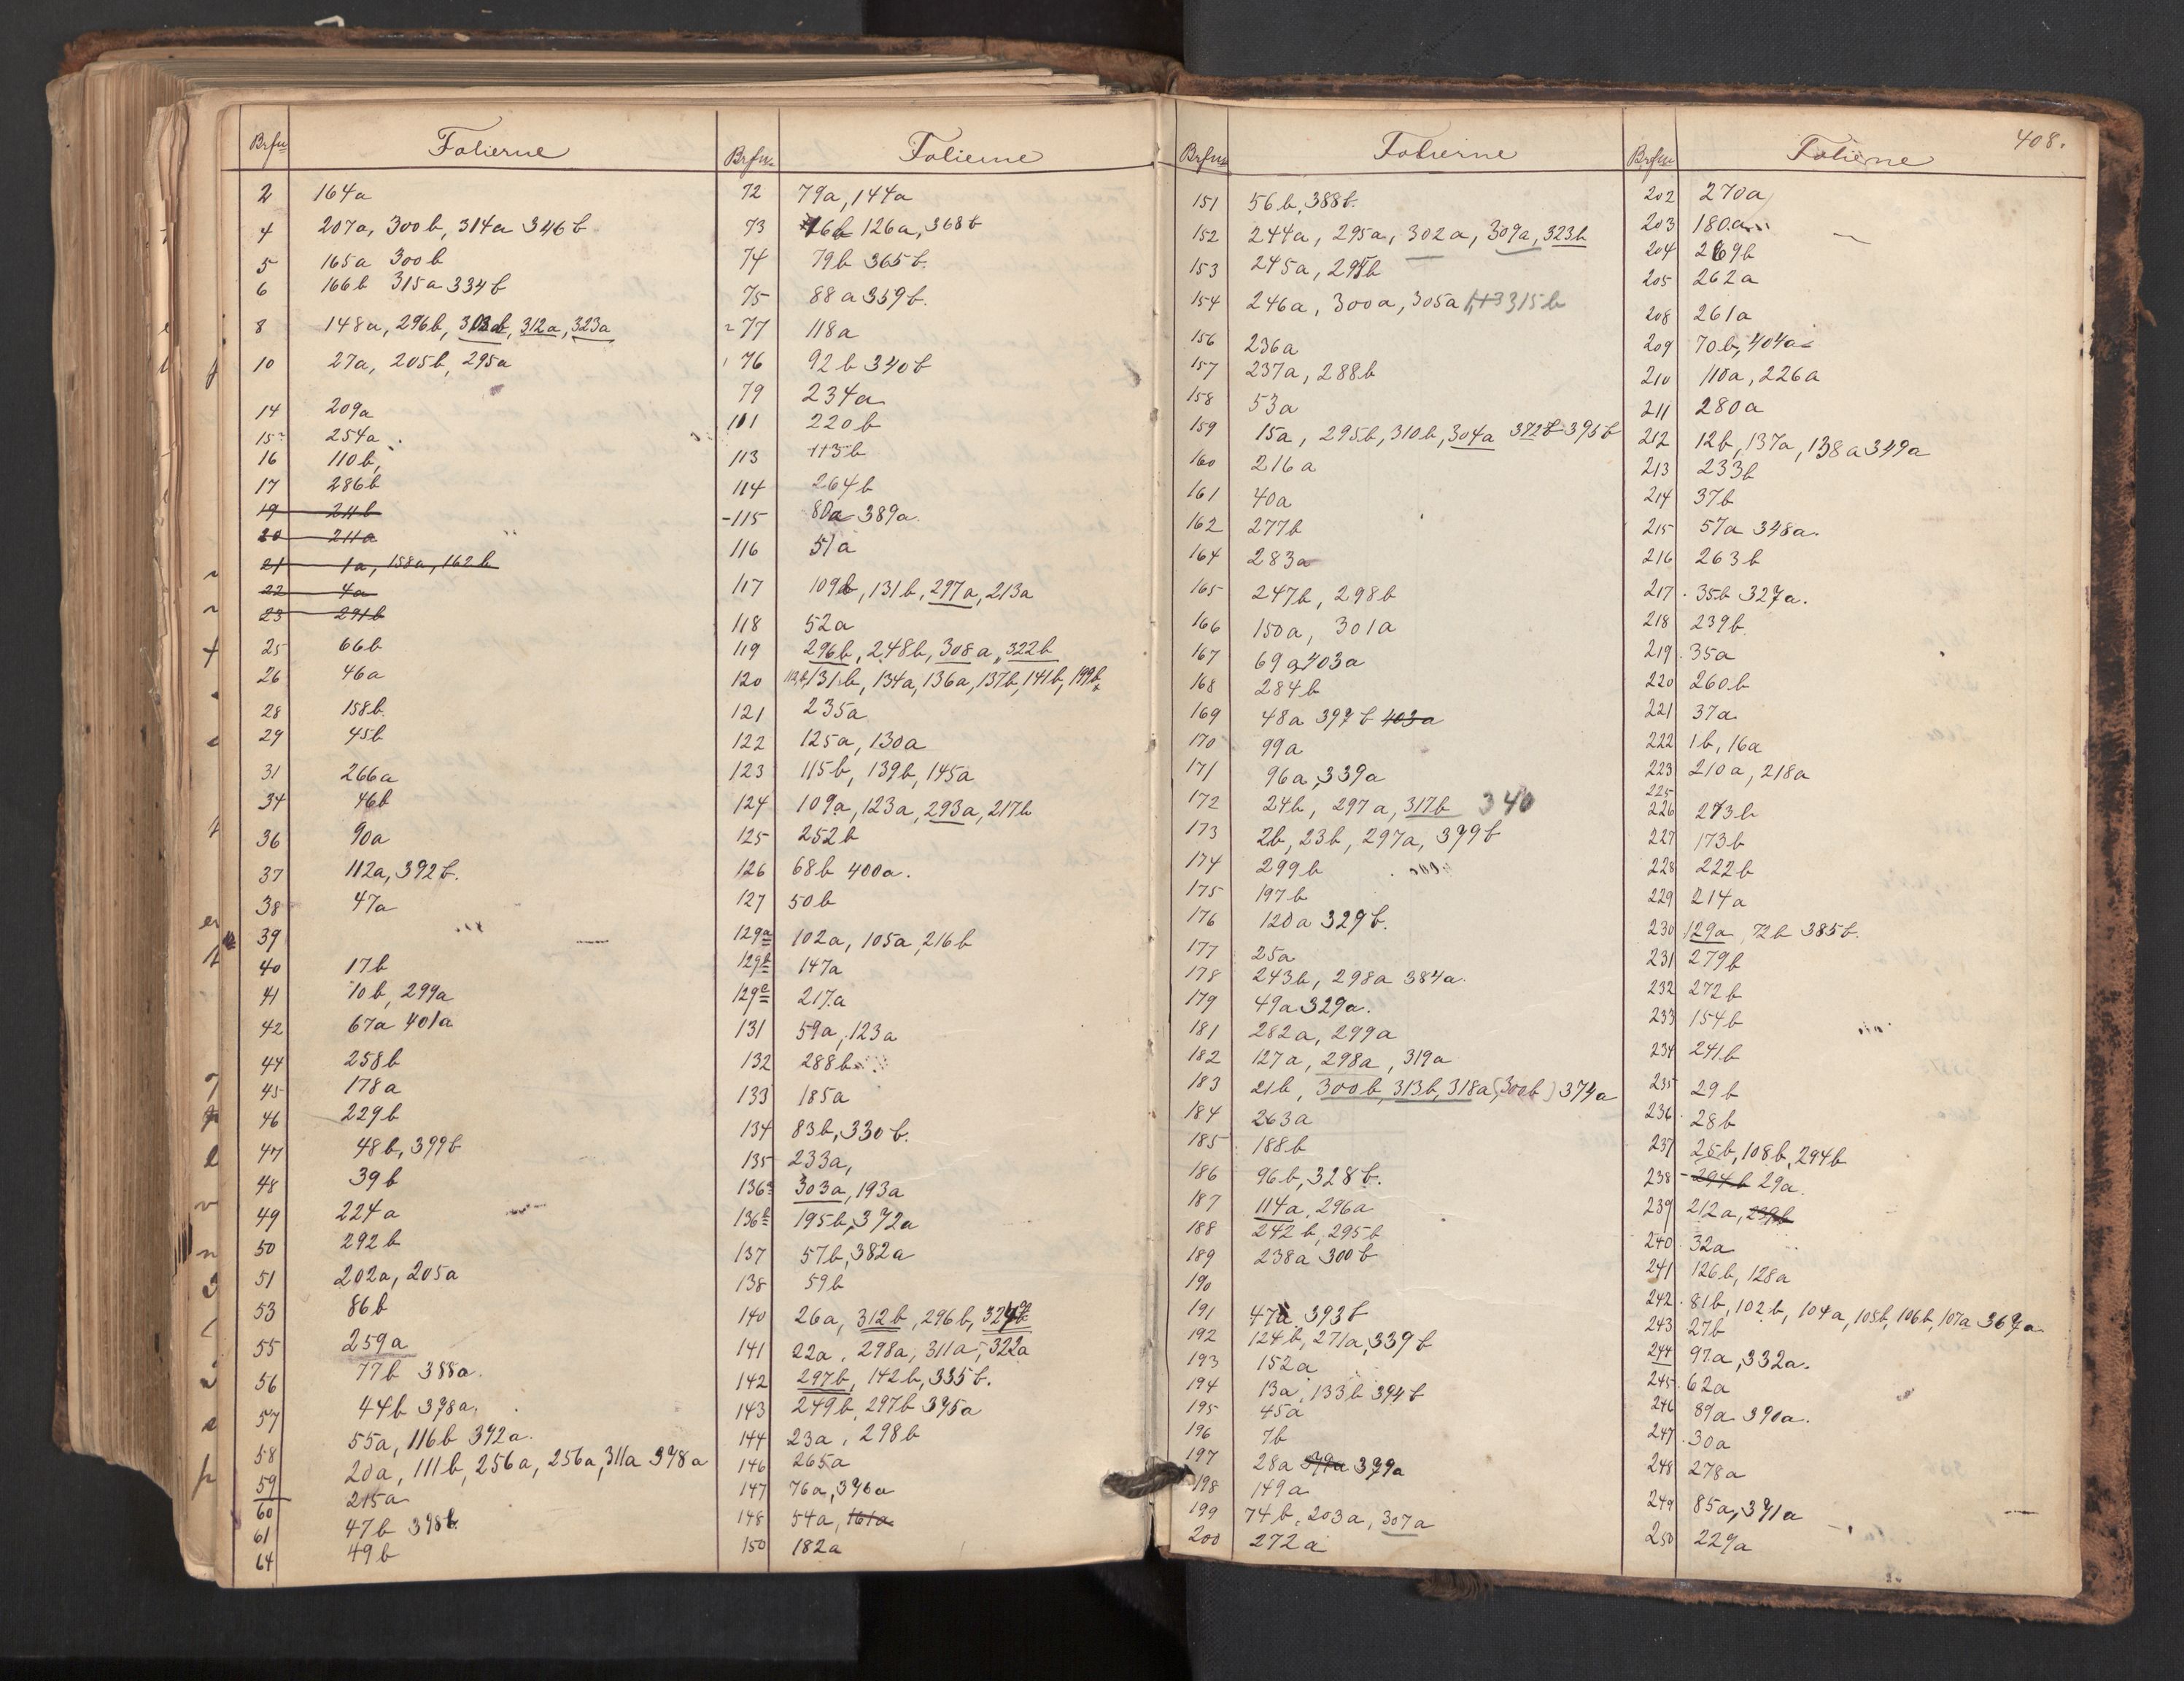 408.
Brfn Folierne
2 164a
4 207a, 300b, 314a 346b
5 165a 300b
6 166b 315a 334b
8 148a, 296b, 312a, 323a
10 27a, 205b, 295a
14 209a
15 254a
16 110b,
17 286b
19 211b
20 211a
21 1a, 158a, 162b
22 4a
23 291b
25 66b
26 46a
28 158b.
29 45b
31 266a
34 46b
36 90a
37 112a, 392b.
38 47a
39
40 17b
41 10b, 299a
42 67a 401a
44 258b
45 178a
46 229b
47 48b, 399b
48 39b
49 224a
50 292b
51 202a, 205a
53 86b
55 259a
56 77b 388a.
57 44b 398a.
58 55a, 116b 392a.
59 20a, 111b, 256a, 256a, 311a 398a
60 215a
61 47b 398b.
64 49b
Brfn. Folierne
72 79a, 144a
73 126a, 368b
74 79b 365b.
75 88a 359b.
77 118a
76 92b 340b
79 234a
101 220b
113 113b
114 264b
115 80a 389a.
116 51a
117 109b, 131b, 297a, 213a
118 52a
119 296b, 248b, 308a, 322b
120 131b, 134a, 136a, 137b, 141b, 199b
121 235a
122 125a, 130a
123 115b, 139b, 145a
124 109a, 123a, 293a, 217b
125 252b
126 68b 400a.
127 50b
129a 102a, 105a, 216b
129b 147a
129c 217a
131 59a, 123a
132 288b
133 185a
134 83b, 330b.
135 233a,
136a 303a, 193a
136b 195b, 372a
137 57b, 382a
138 59b
140 26a, 312b, 296b,
141 22a, 298a, 311a, 322a
142 297b, 142b, 335b.
143 249b, 297b 395a
144 23a, 298b
146 265a
147 76a, 396a
148 54a, 161a
150 182a
Brfn Folierne
151 56b, 388b.
152 244a, 295a, 302a, 309a, 323b
153 245a, 295b
154 246a, 300a, 305a 315b
156 236a
157 237a, 288b
158 53a
159 15a, 295b, 310b, 304a 372b 395b
160 216a
161 40a
162 277b
164 283a
165 247b, 298b
166 150a, 301a
167 69a, 403a
168 284b
169 48a 397b 403a
170 99a
171 96a, 339a
172 24b, 297a, 317b 340
173 2b, 23b, 297a, 379b
174 299b
175 197b
176 120a 329b.
177 25a
178 243b, 298a 384a.
179 49a 329a.
181 282a, 299a
182 127a, 298a, 319a
183 21b, 300b, 313b, 318a (300b) 374a
184 263a
185 188b
186 96b, 328b.
187 114a, 296a
188 242b, 295b
189 238a 300b
190
191 47a 393b
192 124b, 271a, 339b
193 152a
194 13a, 133b 394b
195 45a
196 7b
197 28a 379a 399a
198 149a
199 74b, 203a, 307a
200 272a
Brfn Folierne
202 270a
203 180a
204 269b
205 262a
208 261a
209 70b, 404a
210 110a, 226a
211 280a
212 12b, 137a, 138a 349a
213 233b
214 37b
215 57a 348a.
216 263b
217 35b 327a.
218 239b.
219 35a
220 260b
221 37a
222 1b, 16a
223 210a, 218a
225
226 273b
227 173b
228 222b
229 214a
230 129a, 72b 385b.
231 279b
232 272b
233 154b
234 241b
235 29b
236 28b
237 25b, 108b, 294b
238 294b 29a.
239 212a, 239b
240 32a
241 126b, 128a
242 81b, 102b, 104a, 105b, 106b, 107a 367a
243 27b
244 97a, 332a.
245 62a
246 89a 390a.
247 30a
248 278a
249 85a, 391a
250 229a